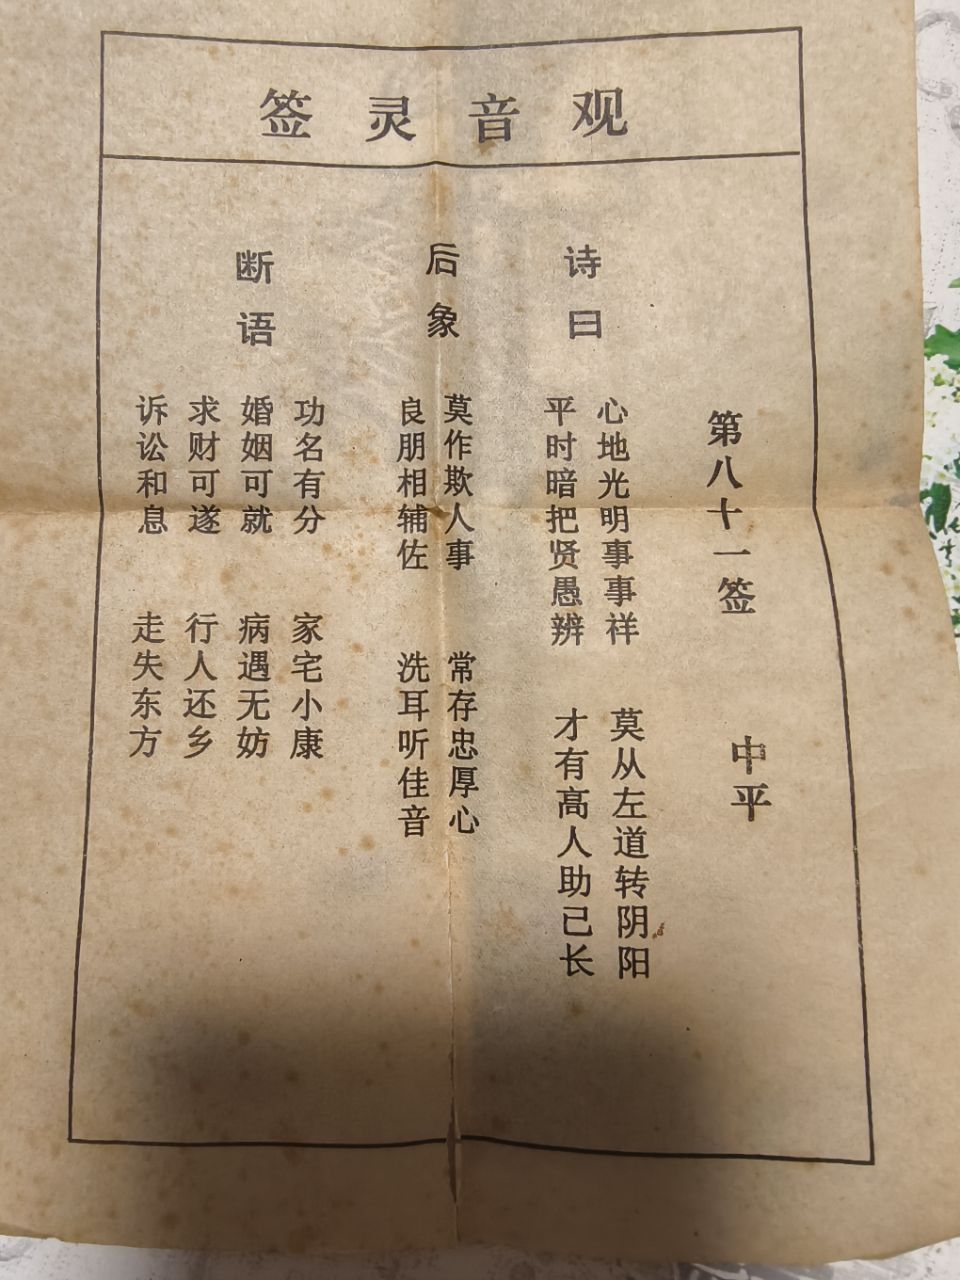 观音灵签
第八十一签 中平
诗曰
心地光明事事祥 莫从左道转阴阳
平时暗把贤愚辨 才有高人助己长
后象
莫作欺人事 常存忠厚心
良朋相辅佐 洗耳听佳音
断语
功名有分 家宅小康
婚姻可就 病遇无妨
求财可遂 行人还乡
诉讼和息 走失东方